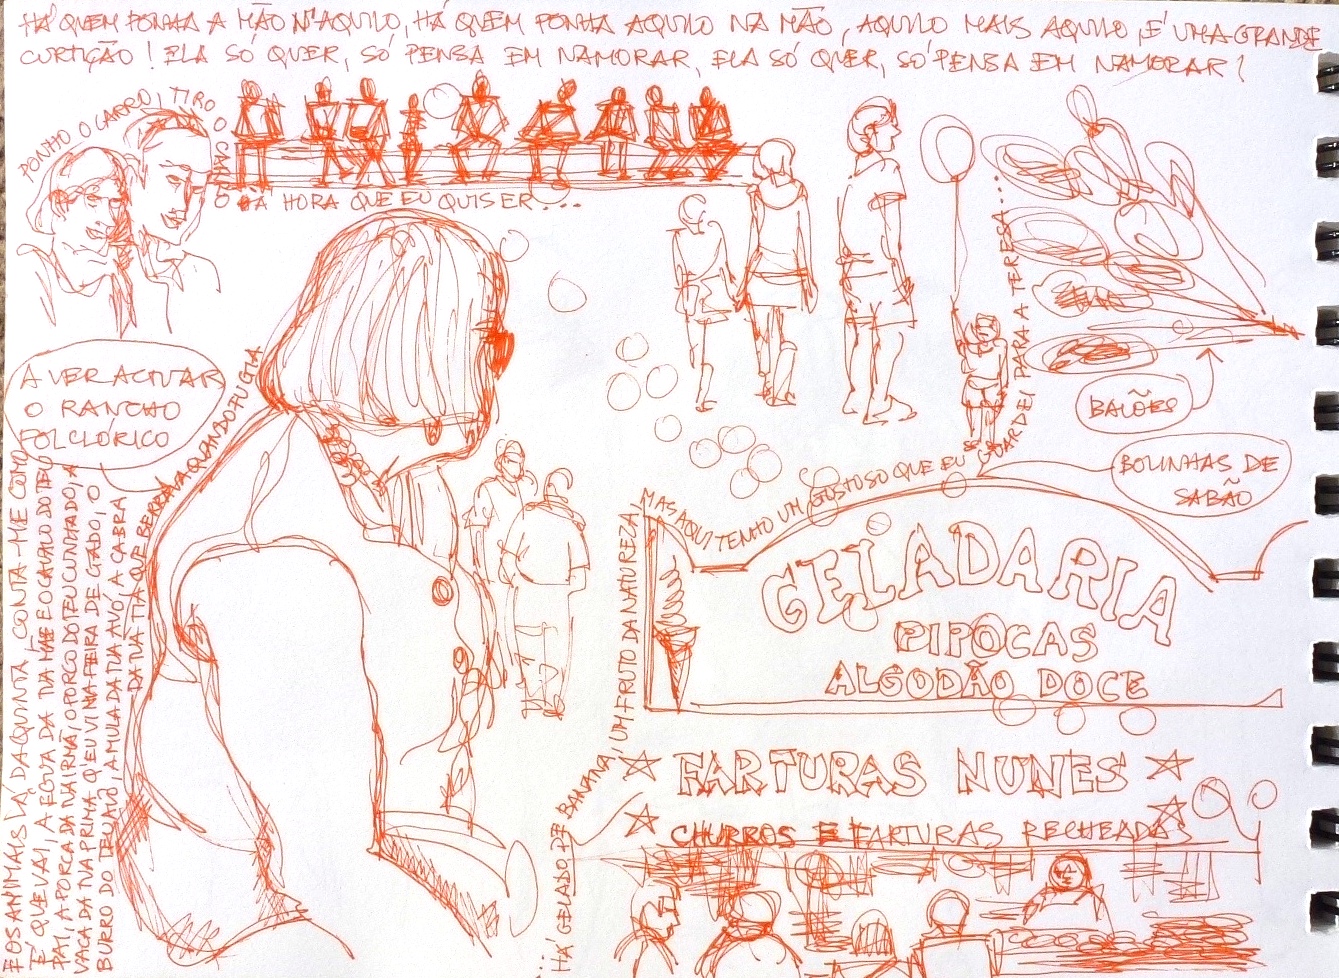 HÁ QUEM PONHA A MÃO N'AQUILO, HÁ QUEM PONHA AQUILO NA MÃO, AQUILO MAIS AQUILO, É UMA GRANDE
CURTIÇÃO! ELA SÓ QUER, SÓ PENSA EM NAMORAR, ELA SÓ QUER, SÓ PENSA EM NAMORAR!
PONHO O CARRO, TIRO O CARRO
À HORA QUE EU QUISER...
A VER ACTUAR
O RANCHO
FOLCLÓRICO
E OS ANIMAIS LÁ DA QUINTA, CONTA-ME COMO
É QUE VAI, A ÉGUA DA TUA MÃE E O CAVALO DO TEU
PAI, A PORCA DA TUA IRMÃ, O PORCO DO TEU CUNHADO, A
VACA DA TUA PRIMA Q'EU VI NA FEIRA DE GADO, O
BURRO DO TEU AVÔ, A MULA DA TUA AVÓ, A CABRA
DA TUA TIA QUE BERRAVA QUANDO FUGIA
...HÁ GELADO DE BANANA, UM FRUTO DA NATUREZA,
MAS AQUI TENHO UM GOSTOSO QUE EU GUARDEI PARA A TERESA...
BALÕES
BOLINHAS DE
SABÃO
GELADARIA
PIPOCAS
ALGODÃO DOCE
FARTURAS NUNES
CHURROS E FARTURAS RECHEADAS